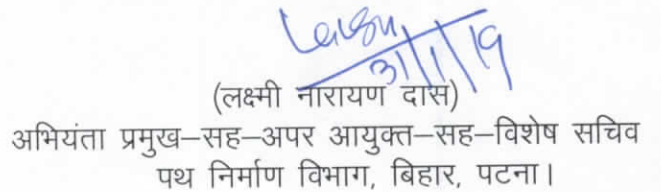 31/1/19
(लक्ष्मी नारायण दास)
अभियंता प्रमुख–सह–अपर आयुक्त–सह–विशेष सचिव
पथ निर्माण विभाग, बिहार, पटना।